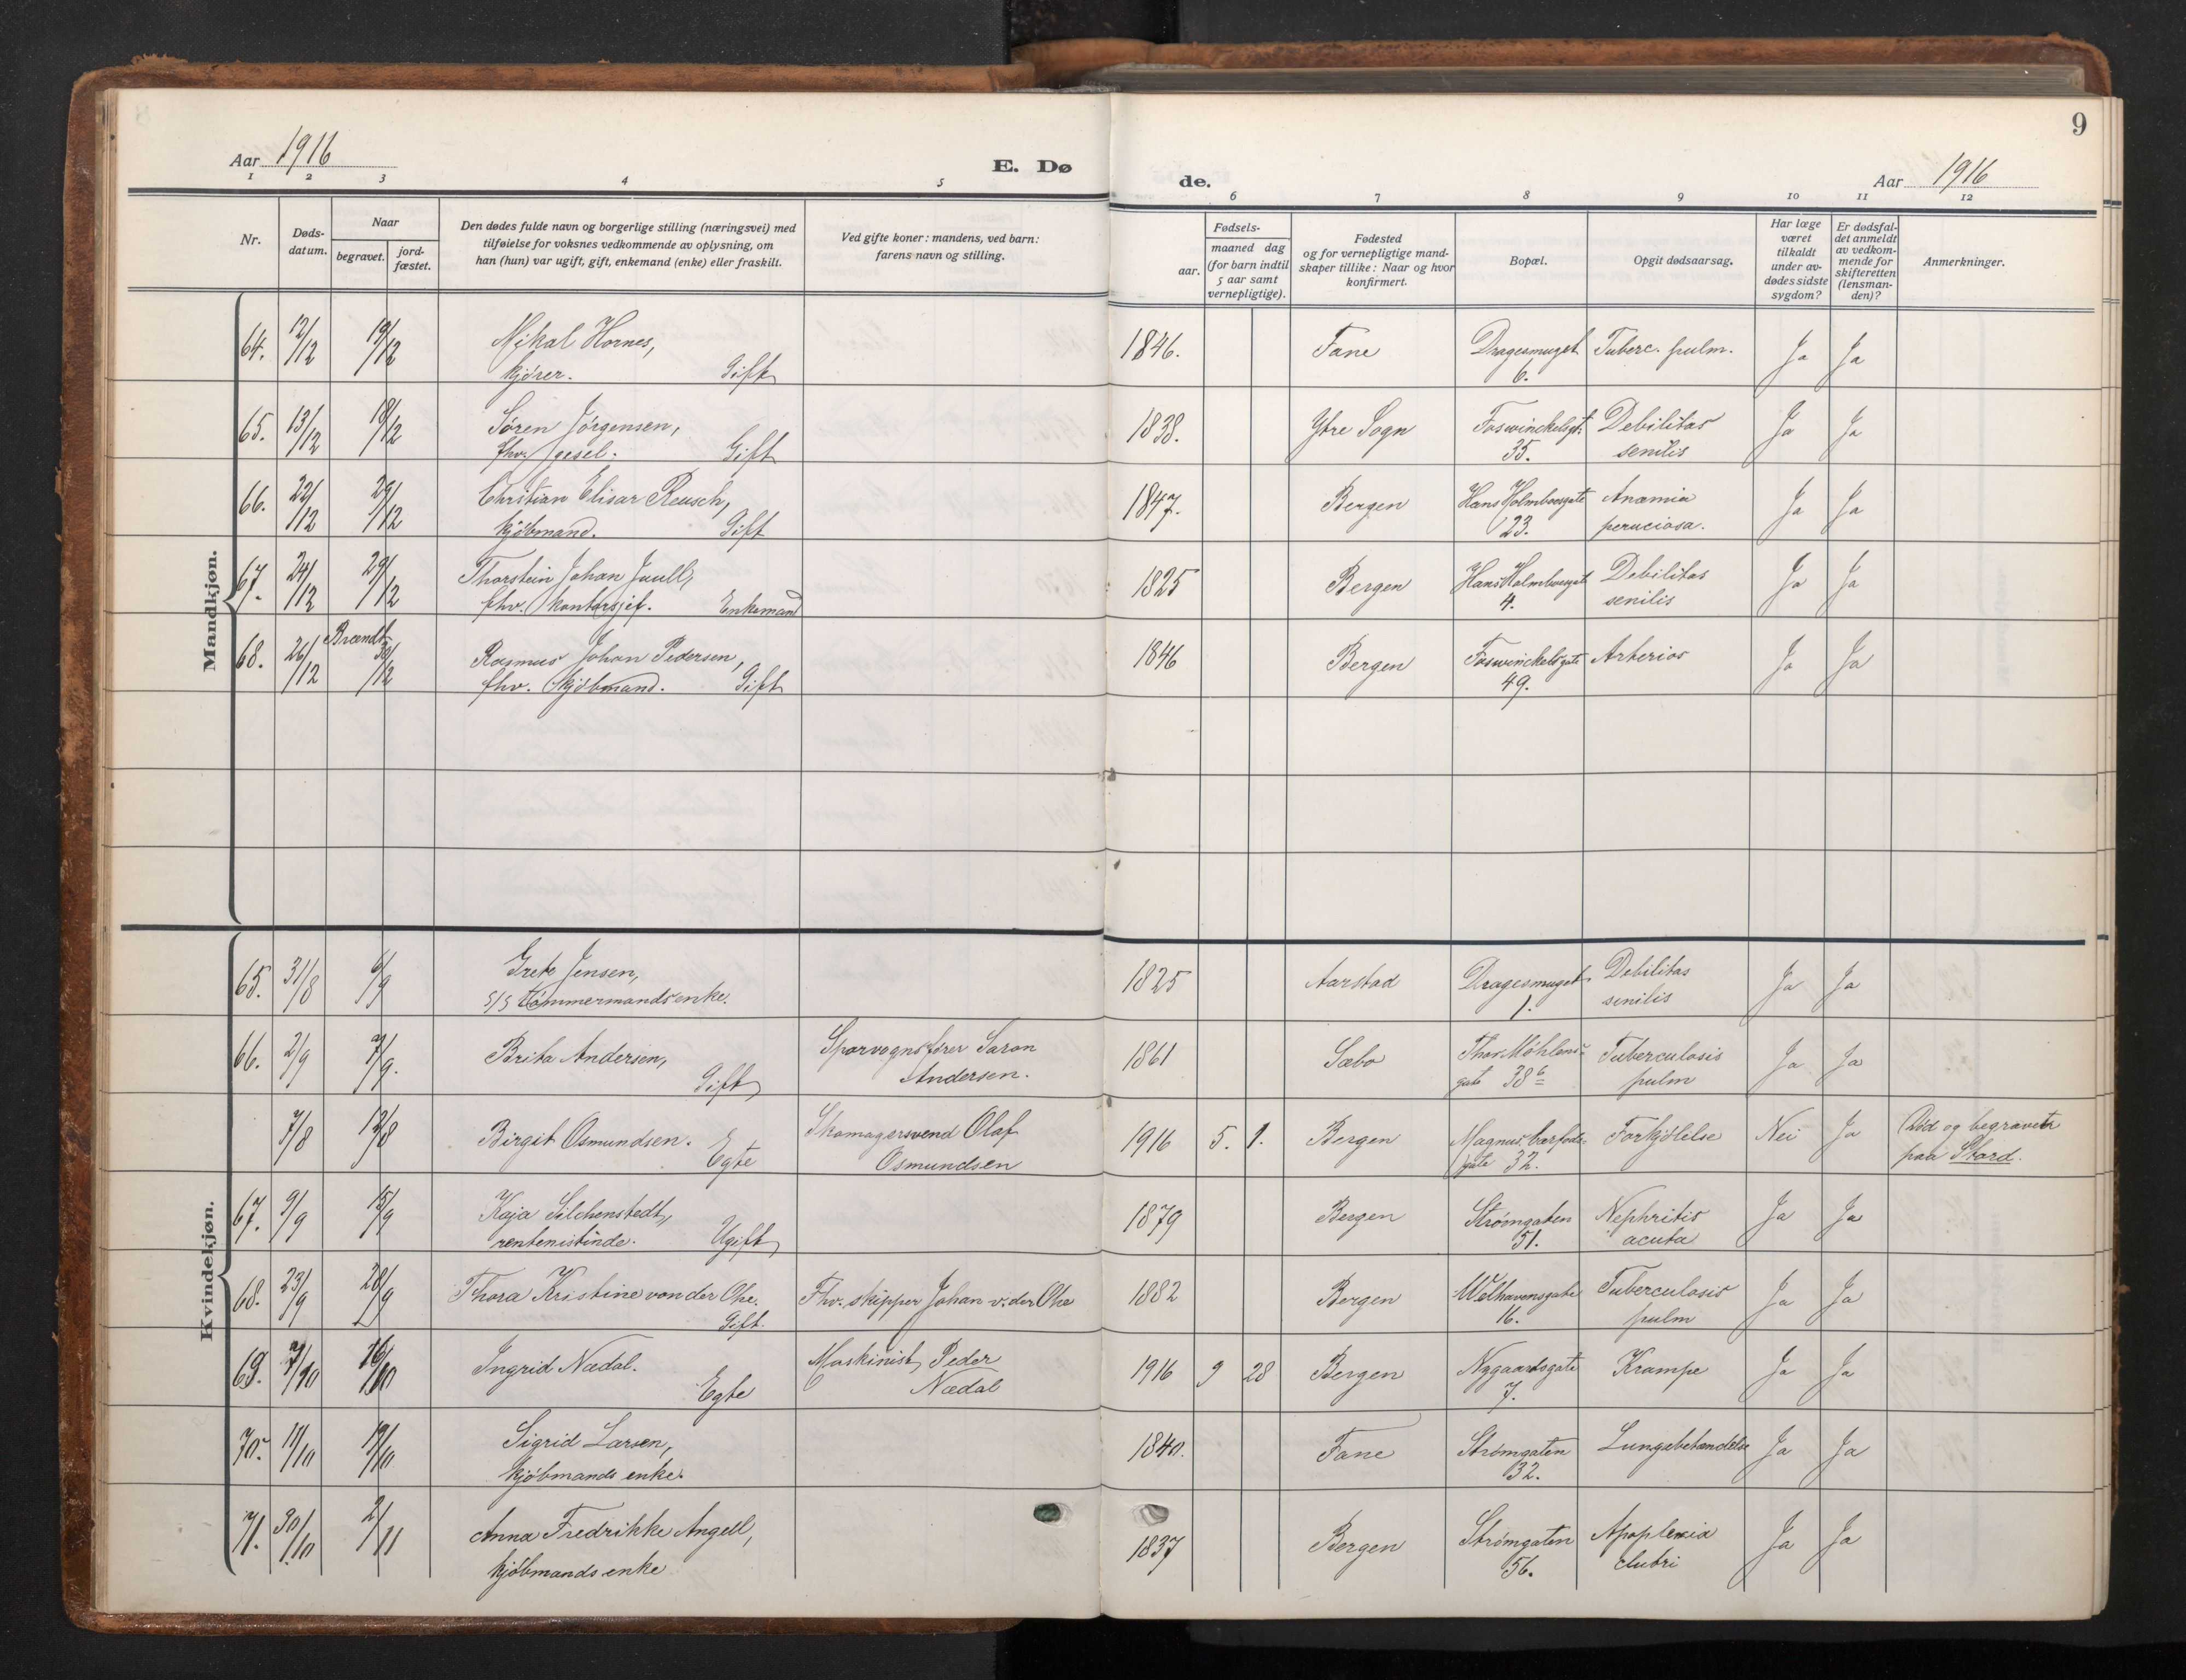 9
Aar 1916
E. Dø
de.
Aar 1916
1 2 3 4 5 6 7 8 9 10 11 12
Nr.
Døds-
datum.
Naar
begravet.
jord-
fæstet.
Den dødes fulde navn og borgerlige stilling (næringsvei) med
tilføielse for voksnes vedkommende av oplysning, om
han (hun) var ugift, gift, enkemand (enke) eller fraskilt.
Ved gifte koner: mandens, ved barn:
farens navn og stilling.
Fødsels-
aar.
maaned dag
(for barn indtil
5 aar samt
vernepligtige).
Fødested
og for vernepligtige mand-
skaper tillike: Naar og hvor
konfirmert.
Bopæl.
Opgit dødsaarsag.
Har læge
været
tilkaldt
under av-
dødes sidste
sygdom?
Er dødsfal-
det anmeldt
av vedkom-
mende for
skifteretten
(lensman-
den)?
Anmerkninger.
Mandkjøn.
64. 12/12 19/12 Mikal Hornes, 1846. Fane Dragesmuget Tuberc. pulm. Ja Ja
kjører. Gift 6.
65. 13/12 18/12 Søren Jørgensen, 1838. Ytre Sogn Foswinckelsgt. Debilitas Ja Ja
fhv. gesel. Gift 35. senilis
66. 22/12 29/12 Christian Elisar Reusch, 1847. Bergen Hans Holmboesgate Anæmia Ja Ja
kjøbmand. Gift 23. perniciosa.
67. 24/12 29/12 Thorstein Johan Juull, 1825 Bergen Hans Holmboesgate Debilitas Ja Ja
fhv. kontorsjef. Enkemand 4. senilis
68. 26/12 Brændt 30/12 Rasmus Johan Pedersen, 1846 Bergen Foswinckelsgate Arterios Ja Ja
fhv. kjøbmand. Gift 49.
Kvindekjøn.
65. 31/8 6/9 Grete Jensen, 1825 Aarstad Dragesmuget Debilitas Ja Ja
s/s tømmermandsenke. 1. senilis
66. 2/9 7/9. Brita Andersen, Sporvognsfører Saron 1861 Sæbo Thor Møhlens- Tuberculosis Ja Ja
Gift Andersen. gate 38 b pulm
7/8 12/8 Birgit Osmundsen. Skomagersvend Olaf 1916 5. 1. Bergen Magnus barfods- Forkjølelse Nei Ja Død og begravet
Egte Osmundsen gate 32. paa Stord.
67. 9/9 15/9 Kaja Silchenstedt, 1879 Bergen Strømgaten Nephritis Ja Ja
rentenistinde. Ugift 51. acuta
68. 23/9 28/9 Thora Kristine von der Ohe. Fhv. skipper Johan v. der Ohe 1882 Bergen Welhavensgate Tuberculosis Ja Ja
Gift. 16. pulm
69. 7/10 16/10 Ingrid Nædal. Maskinist Peder 1916 9 28 Bergen Nygaardsgate Krampe Ja Ja
Egte Nædal 7.
70. 11/10 19/10 Sigrid Larsen, 1840. Fane Strømgaten Lungebetændelse Ja Ja
kjøbmands enke. 32.
71. 30/10 2/11 Anna Fredrikke Angell, 1837 Bergen Strømgaten Apoplexia Ja Ja
kjøbmands enke 56.